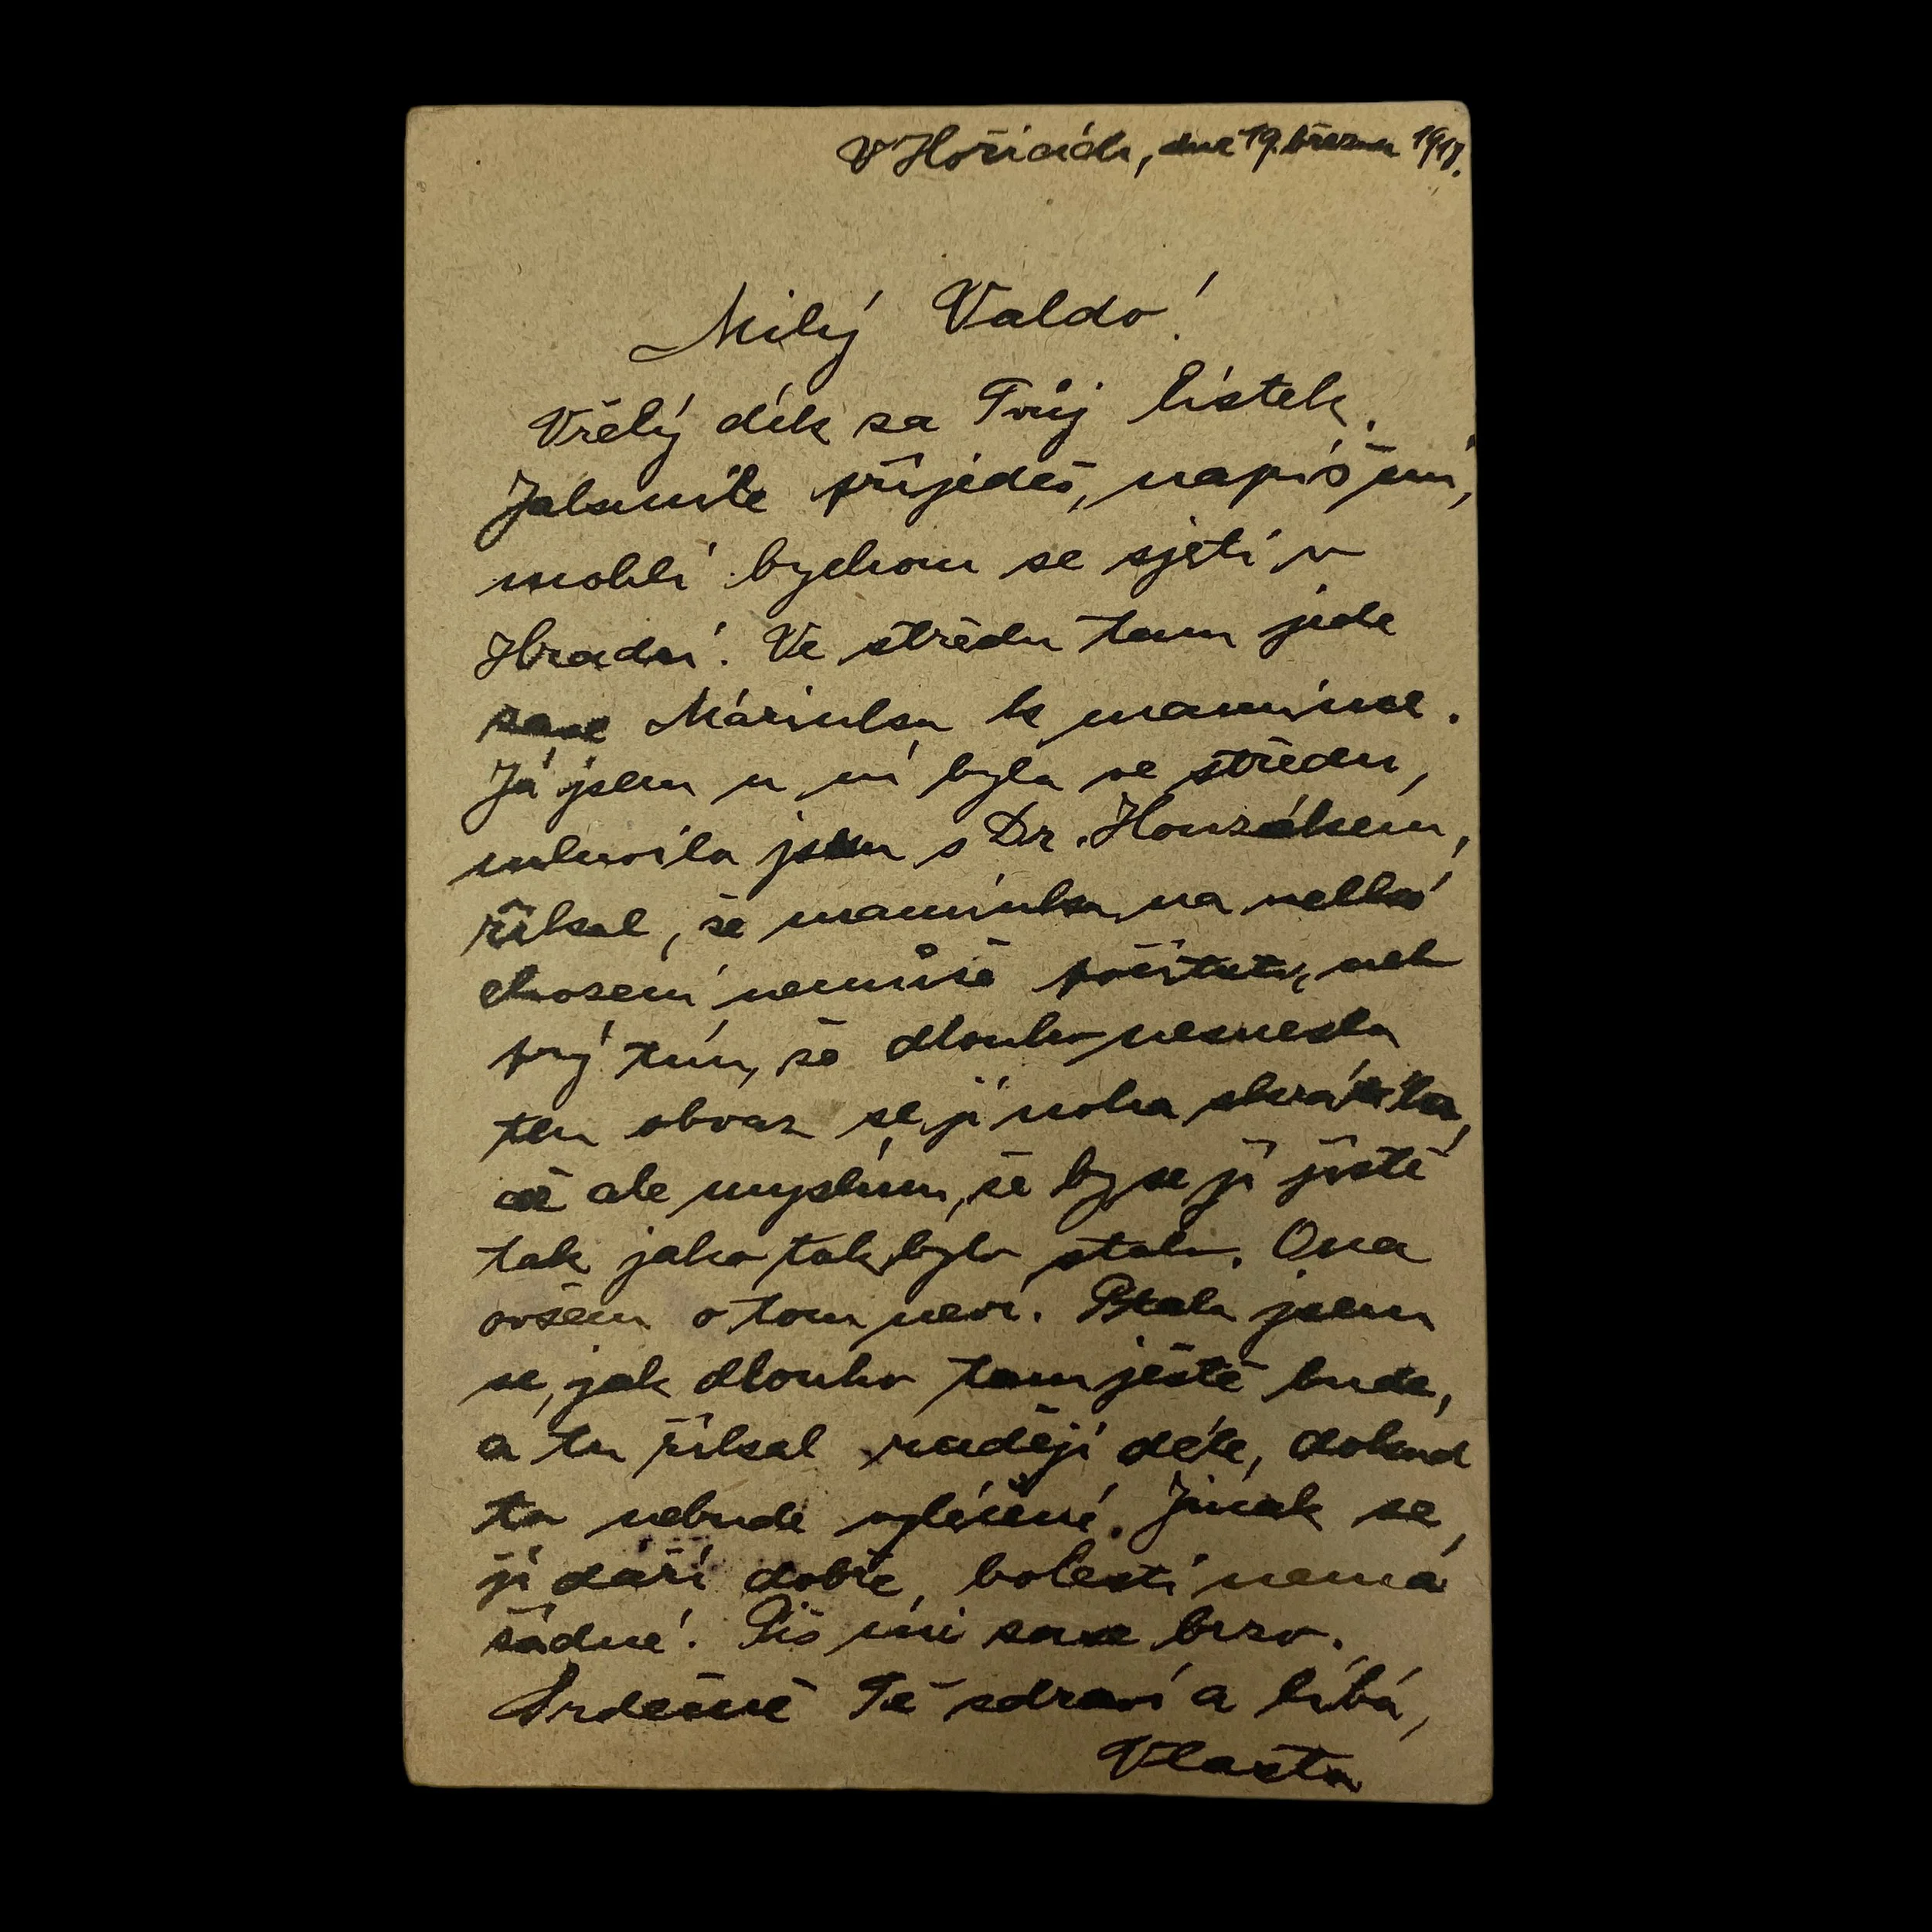 V Hořicích, dne 19. března 1918.
Milý Valdo!
Vřelý dík za Tvůj lístek.
Jakmile přijedeš, napiš mi,
mohli bychom se sjeti v
Hradci. Ve středu tam jede
zase Márinka k mamince.
Já jsem u ní byla ve středu,
mluvila jsem s Dr. Honzákem,
říkal, že maminka na velké
chození nemůže počítati, neb
prý tím, že dlouho nesnesla
ten obvaz se jí noha zkrátila,
ale myslím, že by se jí jistě
tak jako tak bylo stalo. Ona
ovšem o tom neví. Ptala jsem
se, jak dlouho tam ještě bude,
a tu říkal raději déle, dokud
to nebude vyléčené. Jinak se
jí daří dobře, bolesti nemá
žádné. Piš mi zase brzo.
Srdečně Tě zdraví a líbá,
Vlasta